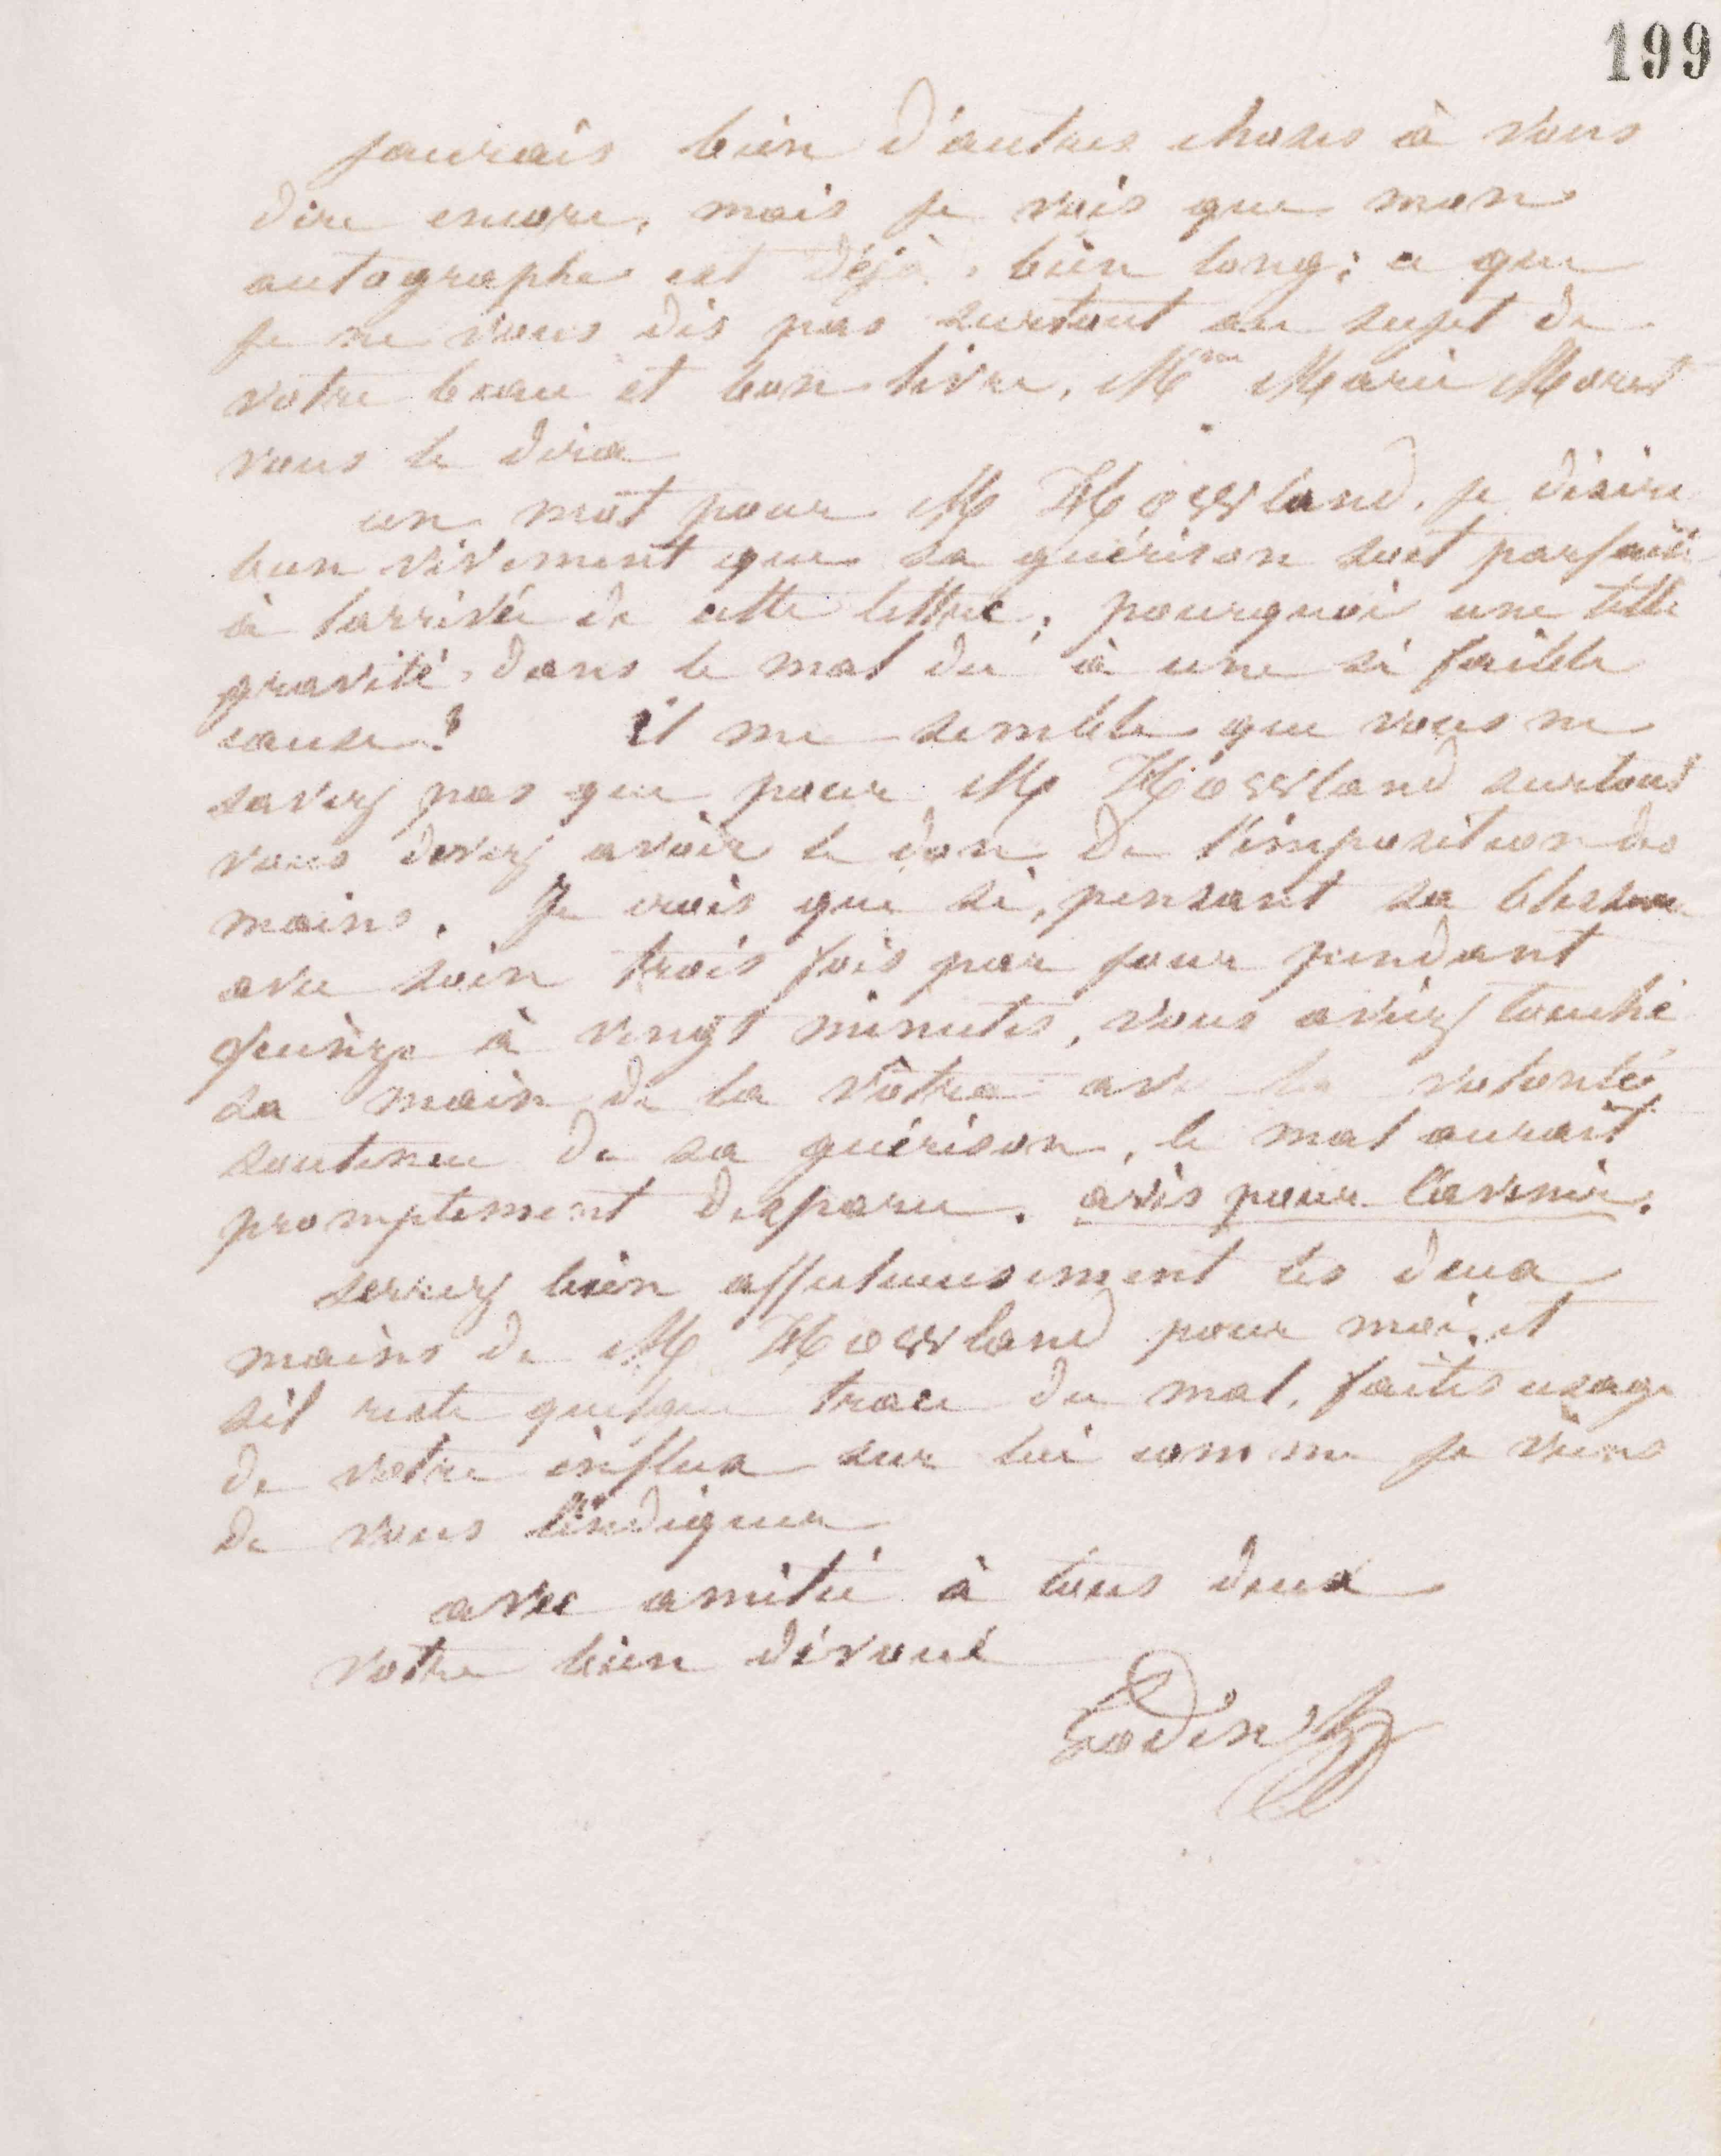 199
jaurais bien d'autres choses à vous
dire encore, mais je vois que mon
autographe est déjà bien long; ce que
je ne vous dis pas surtout au sujet de
votre beau et bon livre, Mme Marie Moret
vous le dira
un mot pour M Howland. je désire
bien vivement que sa guérison soit parfaite
à larrivée de cette lettre; pourquoi une telle
gravité dans le mal du à une si faible
cause? il me semble que vous ne
savez pas que pour M Howland surtout
vous devez avoir le don de l'imposition des
mains. Je crois que si, pensant sa blessure
avec soin trois fois par jour pendant
quinze à vingt minutes, vous aviez touché
sa main de la vôtre avec la volonté
soutenue de sa guérison, le mal aurait
promptement disparu. avis pour l'avenir.
serrez bien affectueusement les deux
mains de M Howland pour moi, et
sil reste quelque trace du mal, faites usage
de votre influx sur lui comme je viens
de vous l'indiquer
avec amitié à tous deux
votre bien dévoué
Godin